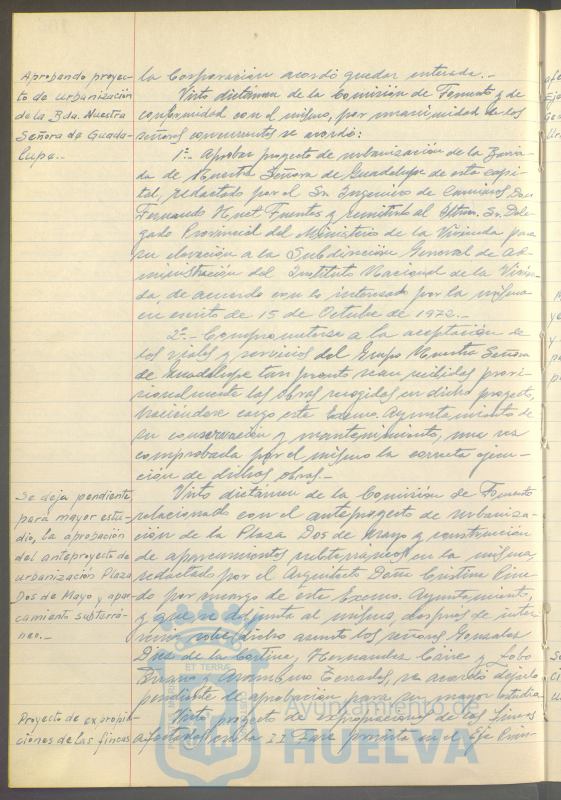 Aprobando proyec-
to de urbanización
de la Bda. Nuestra
Señora de Guada-
lupe.-
la Corporación acordó quedar enterada.-
Visto dictámen de la Comisión de Fomento y de
conformidad con el mismo, por unanimidad de los
señores concurrentes se acordó:
1º- Aprobar proyecto de urbanización de la Barria-
da de Nuestra Señora de Guadalupe de esta capi-
tal, redactado por el Sr. Ingeniero de Caminos Don
Fernando Fuentes y remitirlo al Iltmo. Sr. Dele-
gado Provincial del Ministerio de la Vivienda para
su elevación a la Subdirección General de Ad-
ministración del Instituto Nacional de la Vivien-
da, de acuerdo con lo interesado por la misma
en escrito de 15 de Octubre de 1972.-
2º.- Comprometerse a la aceptación de
los viales y servicios del Grupo Nuestra Señora
de Guadalupe tan pronto sean recibidas provi-
sionalmente las obras recogidas en dicho proyecto,
haciéndose cargo este Excmo. Ayuntamiento de
su conservación y mantenimiento, una vez
comprobada por el mismo la correcta ejecu-
ción de dichas obras.-
Se deja pendiente
para mayor estu-
dio, la aprobación
del anteproyecto de
urbanización Plaza
Dos de Mayo y apar-
camiento subterrá-
neo.-
Visto dictámen de la Comisión de Fomento
relacionado con el anteproyecto de urbaniza-
ción de la Plaza Dos de Mayo y construcción
de aparcamientos subterráneos en la misma,
redactado por el Arquitecto Doña Cristina
do por encargo de este Excmo. Ayuntamiento,
y que se adjunta al mismo, después de inter-
venir sobre dicho asunto los señores Gonzalez
Diaz de la Cortina, Hernandez y Lobo
Terrades, se acordó dejarlo
pendiente de aprobación para su mayor estudio.
Proyecto de expropia-
ciones de las fincas
Visto proyecto de expropiaciones de las fincas
afectadas en la II Fase prevista en el Eje
ET TERRAE
Ayuntamiento de
HUELVA